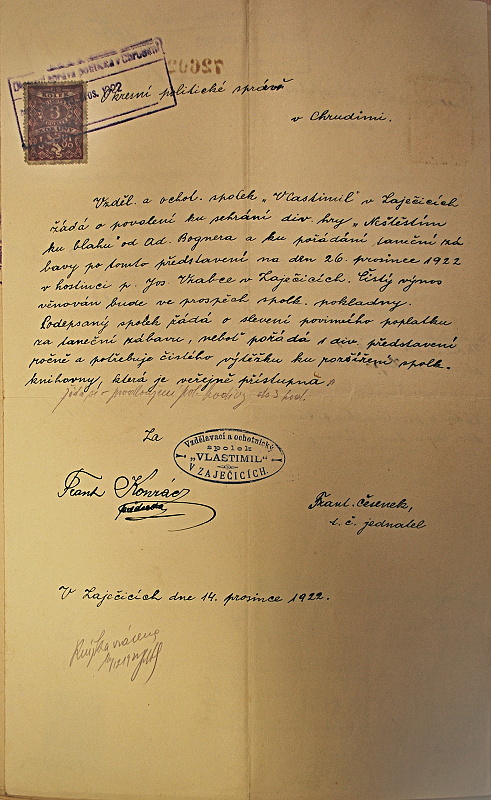 Okresní politické správě
v Chrudimi.
Vzděl. a ochot. spolek „Vlastimil" v Zaječicích
žádá o povolení ku sehrání div. hry „Neštěstím
ku blahu" od Ad. Bognera a ku pořádání taneční zá
bavy po tomto představení na den 26. prosince 1922
v hostinci p. Jos. Vrabce v Zaječicích. Čistý výnos
věnován bude ve prospěch spolk. pokladny.
Podepsaný spolek žádá o slevení povinného poplatku
za taneční zábavu, neboť pořádá 1 div. představení
ročně a potřebuje čistého výtěžku ku rozšíření spolk.
knihovny, která je veřejně přístupná
do 3 hod.
Za
Vzdělávací a ochotnický
spolek
„VLASTIMIL"
V ZAJEČICÍCH.
Frant Konráč
předseda
Frant. Česenek,
t. č. jednatel
V Zaječicích dne 14. prosince 1922.